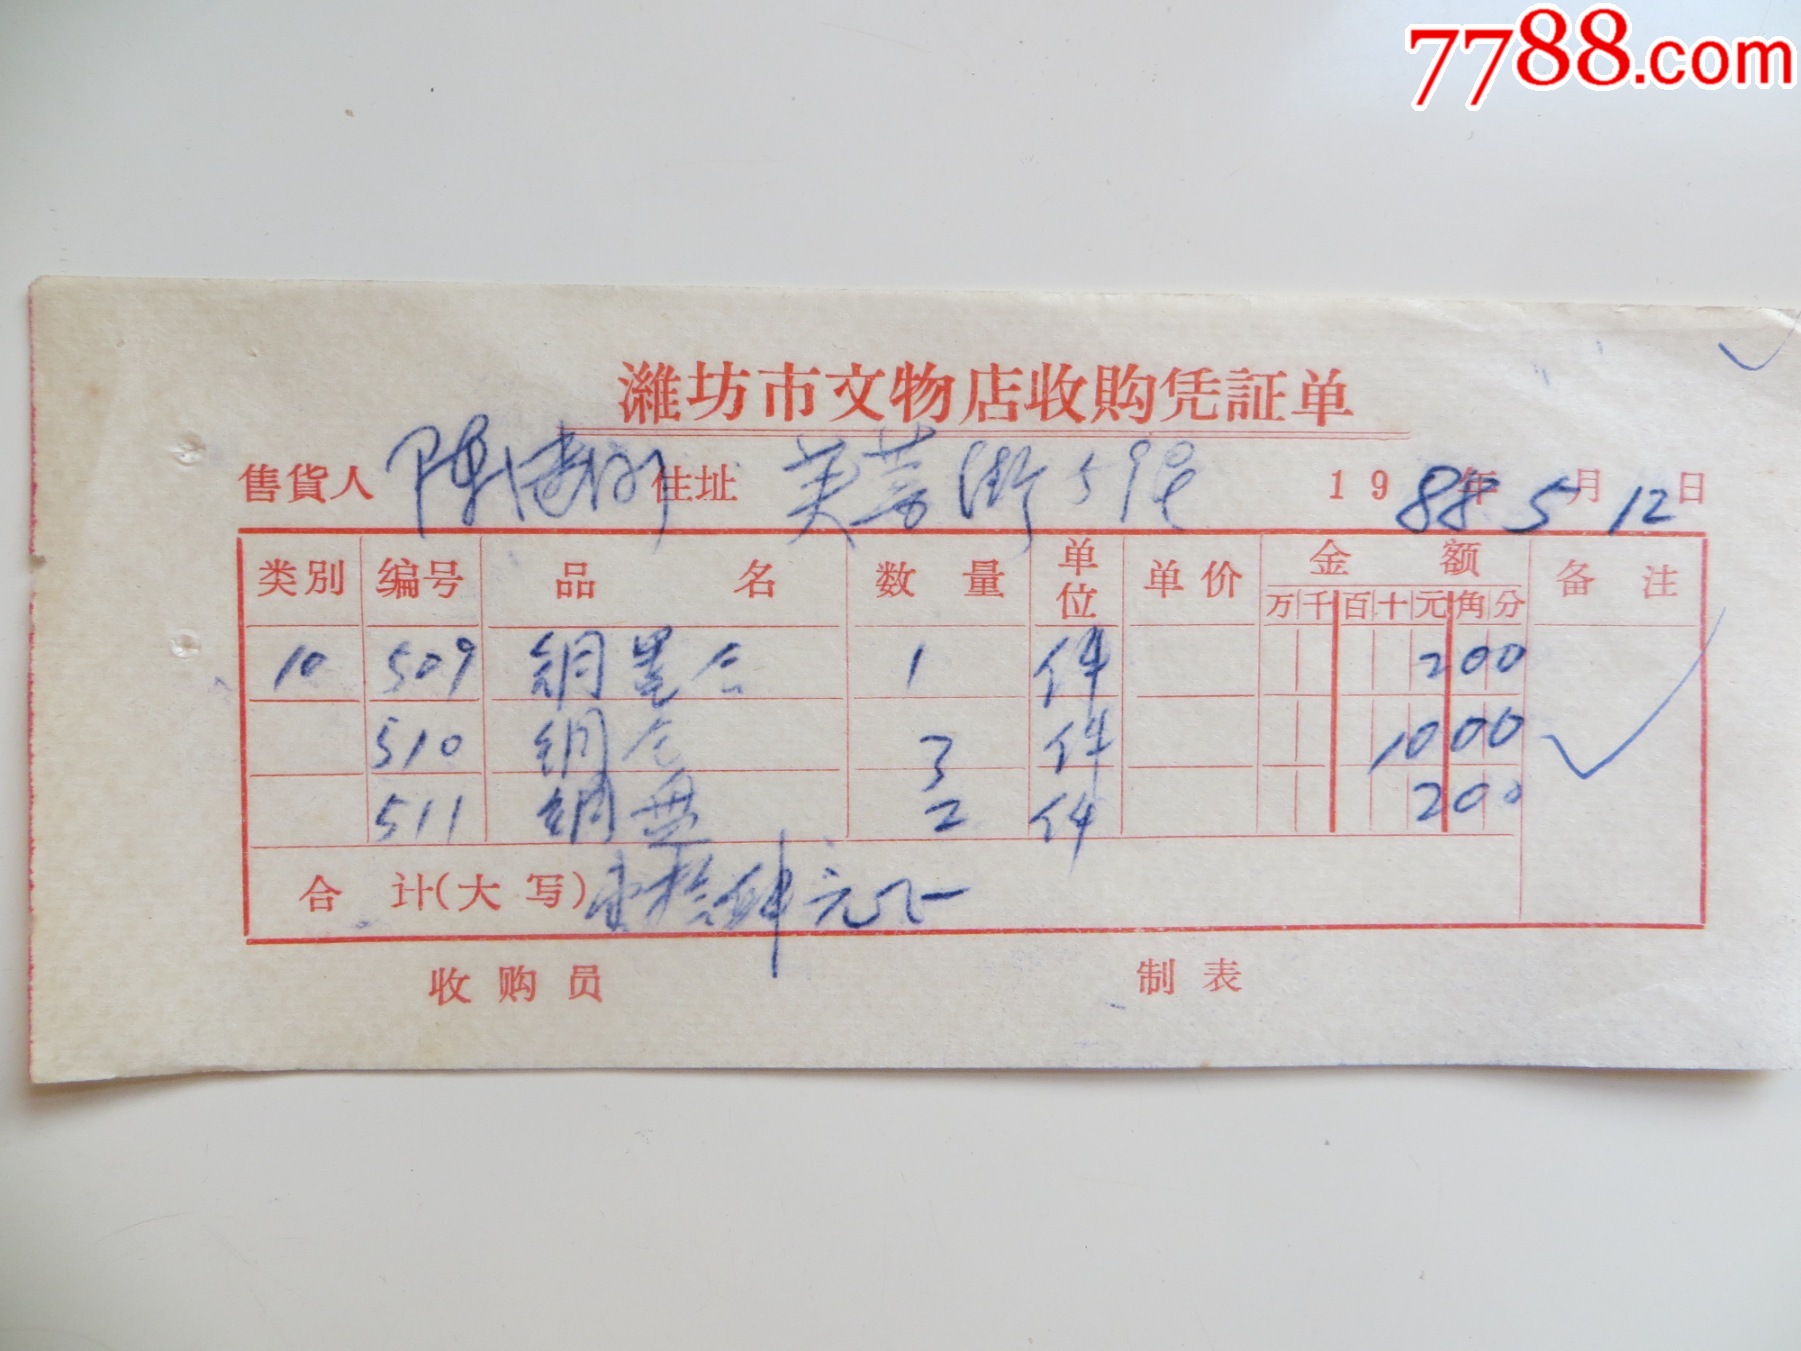 7788.com
潍坊市文物店收购凭証单
售貨人 陈 住址 芙蓉街59号 1988年5月12日
类别 编号 品名 数量 单位 单价 金额 备注
万 千 百 十 元 角 分
10 509 铜墨合 1 件 200
510 铜合 3 件 1000
511 铜盘 2 件 200
合计(大写) 壹拾肆元正
收购员 制表